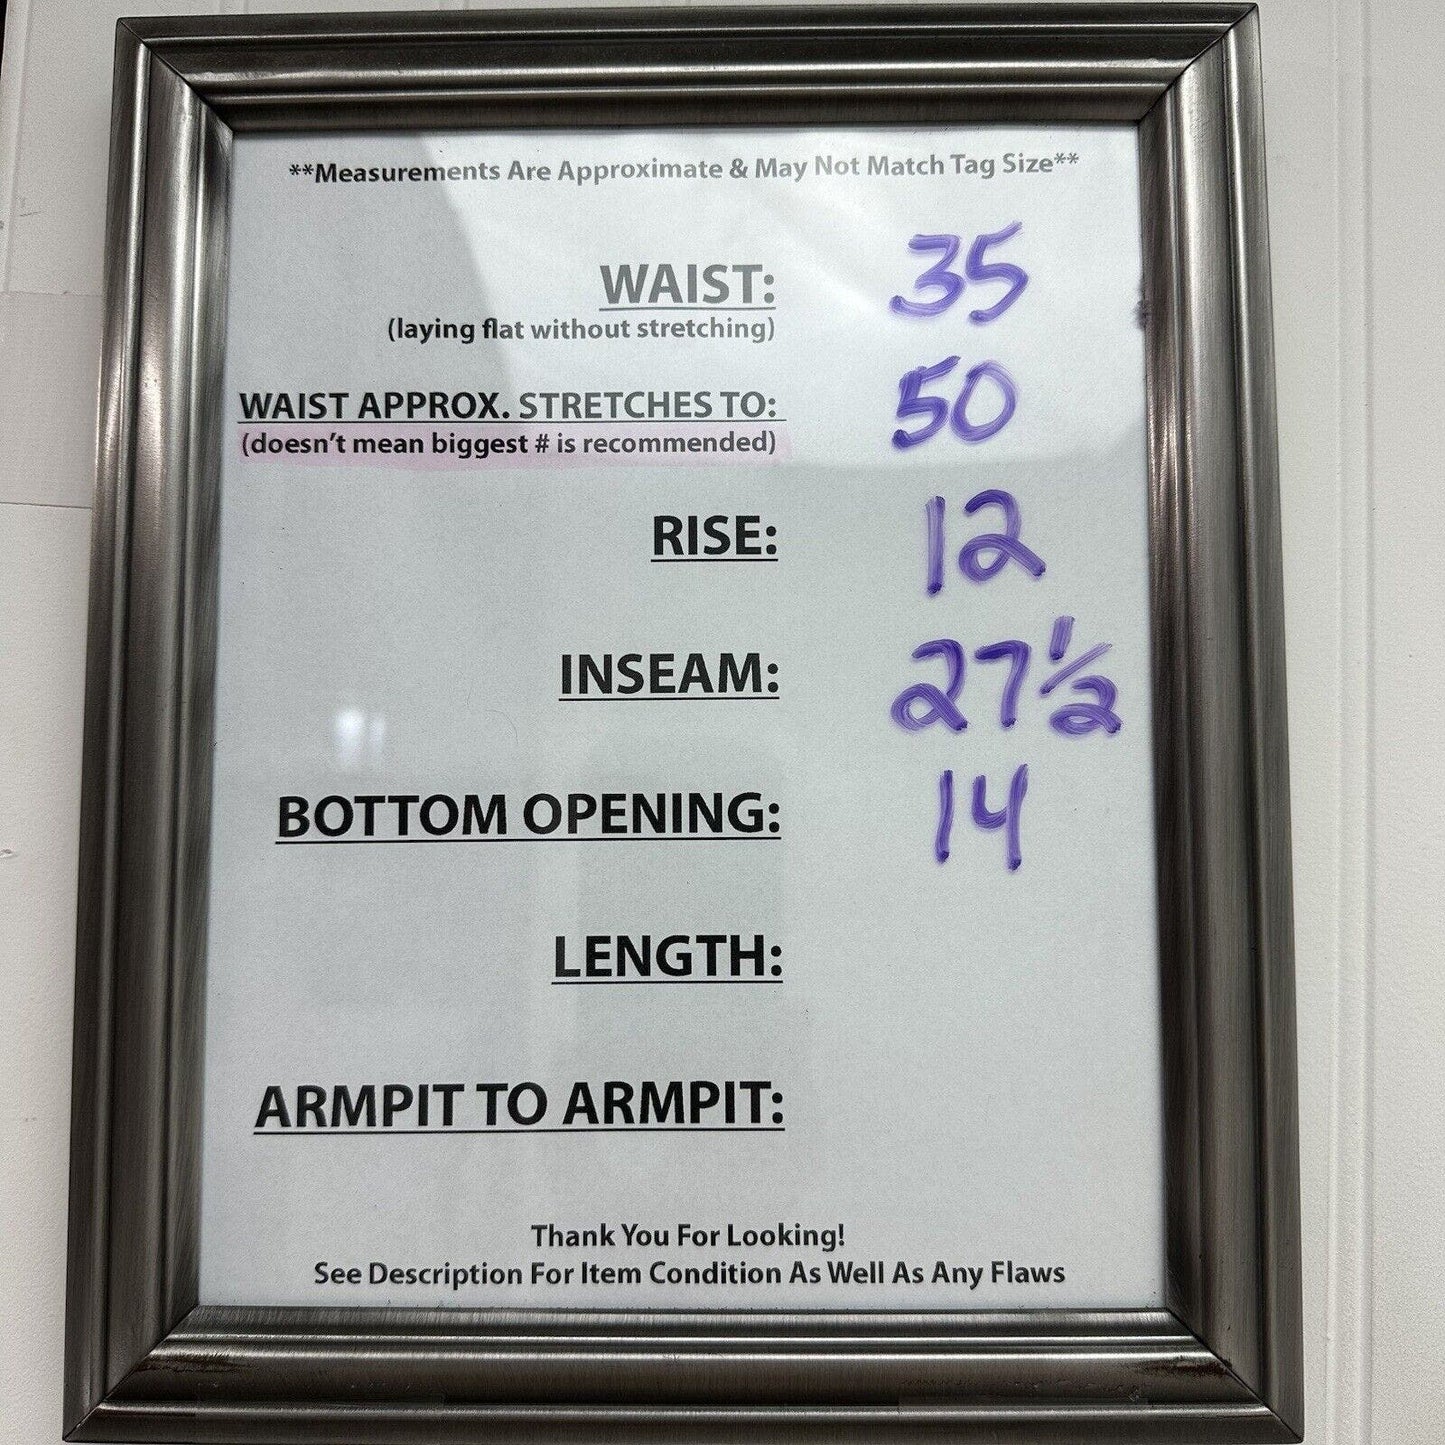 **Measurements Are Approximate & May Not Match Tag Size**
WAIST: 35
(laying flat without stretching)
WAIST APPROX. STRETCHES TO: 50
(doesn't mean biggest # is recommended)
RISE: 12
INSEAM: 27 1/2
BOTTOM OPENING: 14
LENGTH:
ARMPIT TO ARMPIT:
Thank You For Looking!
See Description For Item Condition As Well As Any Flaws